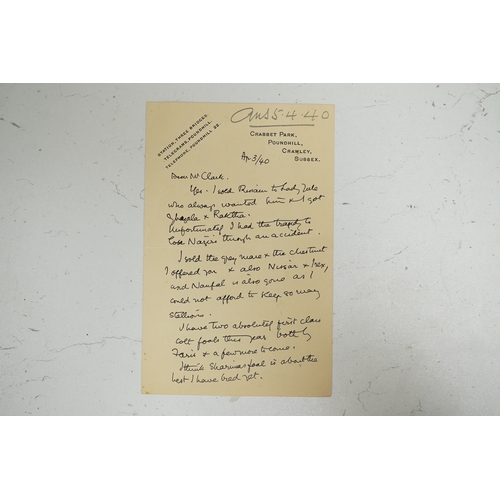 Ans 5.4.40
STATION, THREE BRIDGES.
TELEGRAMS, POUNDHILL.
TELEPHONE, POUNDHILL 22.
CRABBET PARK,
POUNDHILL,
CRAWLEY,
SUSSEX.
Ap 3/40
Dear Mr Clark.
Yes. I sold Rissam to Lady Yule
who always wanted him & I got
Ghazala & Raktha.
Unfortunately I had the tragedy to
lose Naziri through an accident.
I sold the grey mare & the chestnut
I offered you & also Nissar & Irex,
and Naufal is also gone as I
could not afford to keep so many
stallions.
I have two absolutely first class
colt foals this year both by
Faris & a few more to come.
I think Sharimas foal is about the
best I have bred yet.